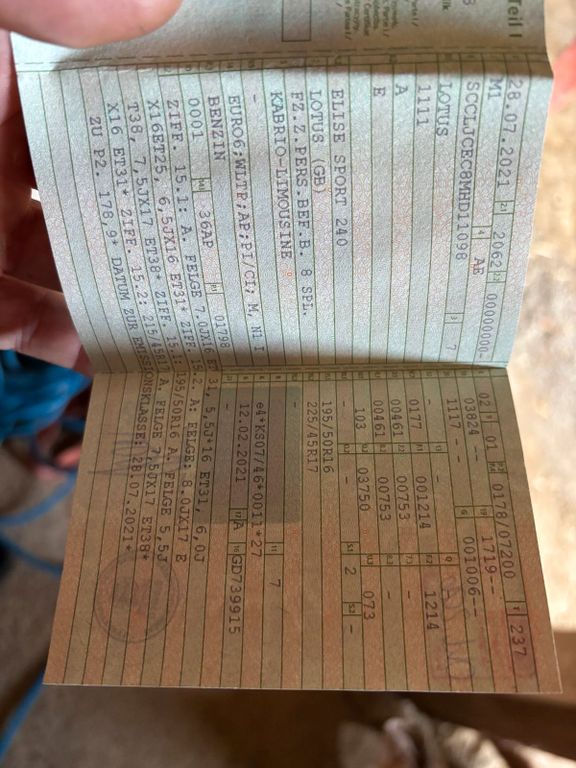 Teil I
28.07.2021 2063 00000000-
M1 AE
SCCLJCEC8MHD11098 7
LOTUS
1111
A
E
ELISE SPORT 240
LOTUS (GB)
FZ.Z.PERS.BEF.B. 8 SPL.
KABRIO-LIMOUSINE
-
EURO6;WLTP;AP;PI/CI; M, N1 I
BENZIN
0001 36AP 01798
02 01 0178/07200 237
03824 -- 1719--
1117 - 001006--
- -
0177 001214 1214
00461 00753 -
00461 00753 -
103 03750 073
2 -
195/50R16
225/45R17
-
e4*KS07/46*0011*27 7
12.02.2021 A GD739915
-
ZIFF. 15.1: A. FELGE 7.0JX16 ET 31, 5,5J*16 ET31, 6,0J
X16ET25, 6,5JX16 ET31* ZIFF. 15.2. A: FELGE: 8.0JX17 E
T38, 7,5JX17 ET38* ZIFF. 15.1: A. FELGE 5,5J
X16 ET31* ZIFF. 15.2: 215/45R17 A. FELGE 7,5JX17 ET38*
ZU P2. 178,9* DATUM ZUR EMISSIONSKLASSE: 28.07.2021*